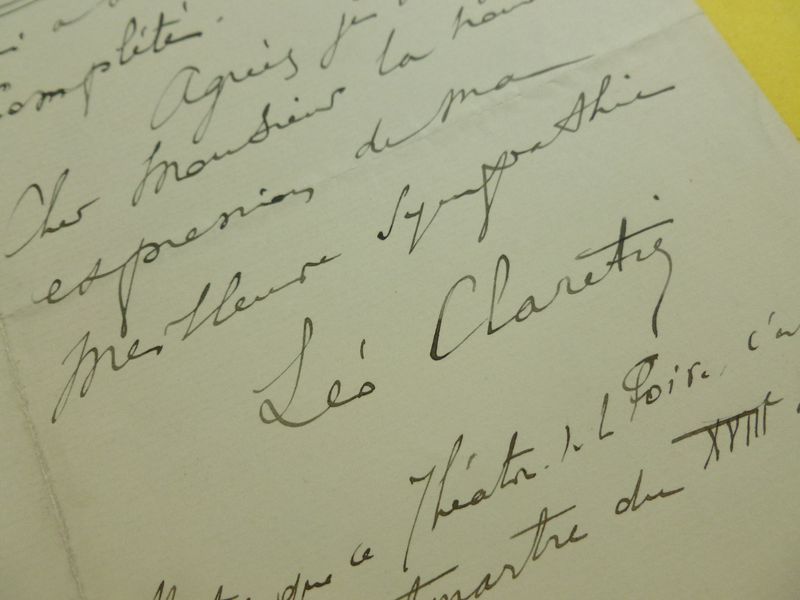 complété.
Agréez je
Cher Monsieur la
expression de ma
meilleure sympathie
Léo Claretie
que ce Théâtre de la Foire, c'
du XVIII